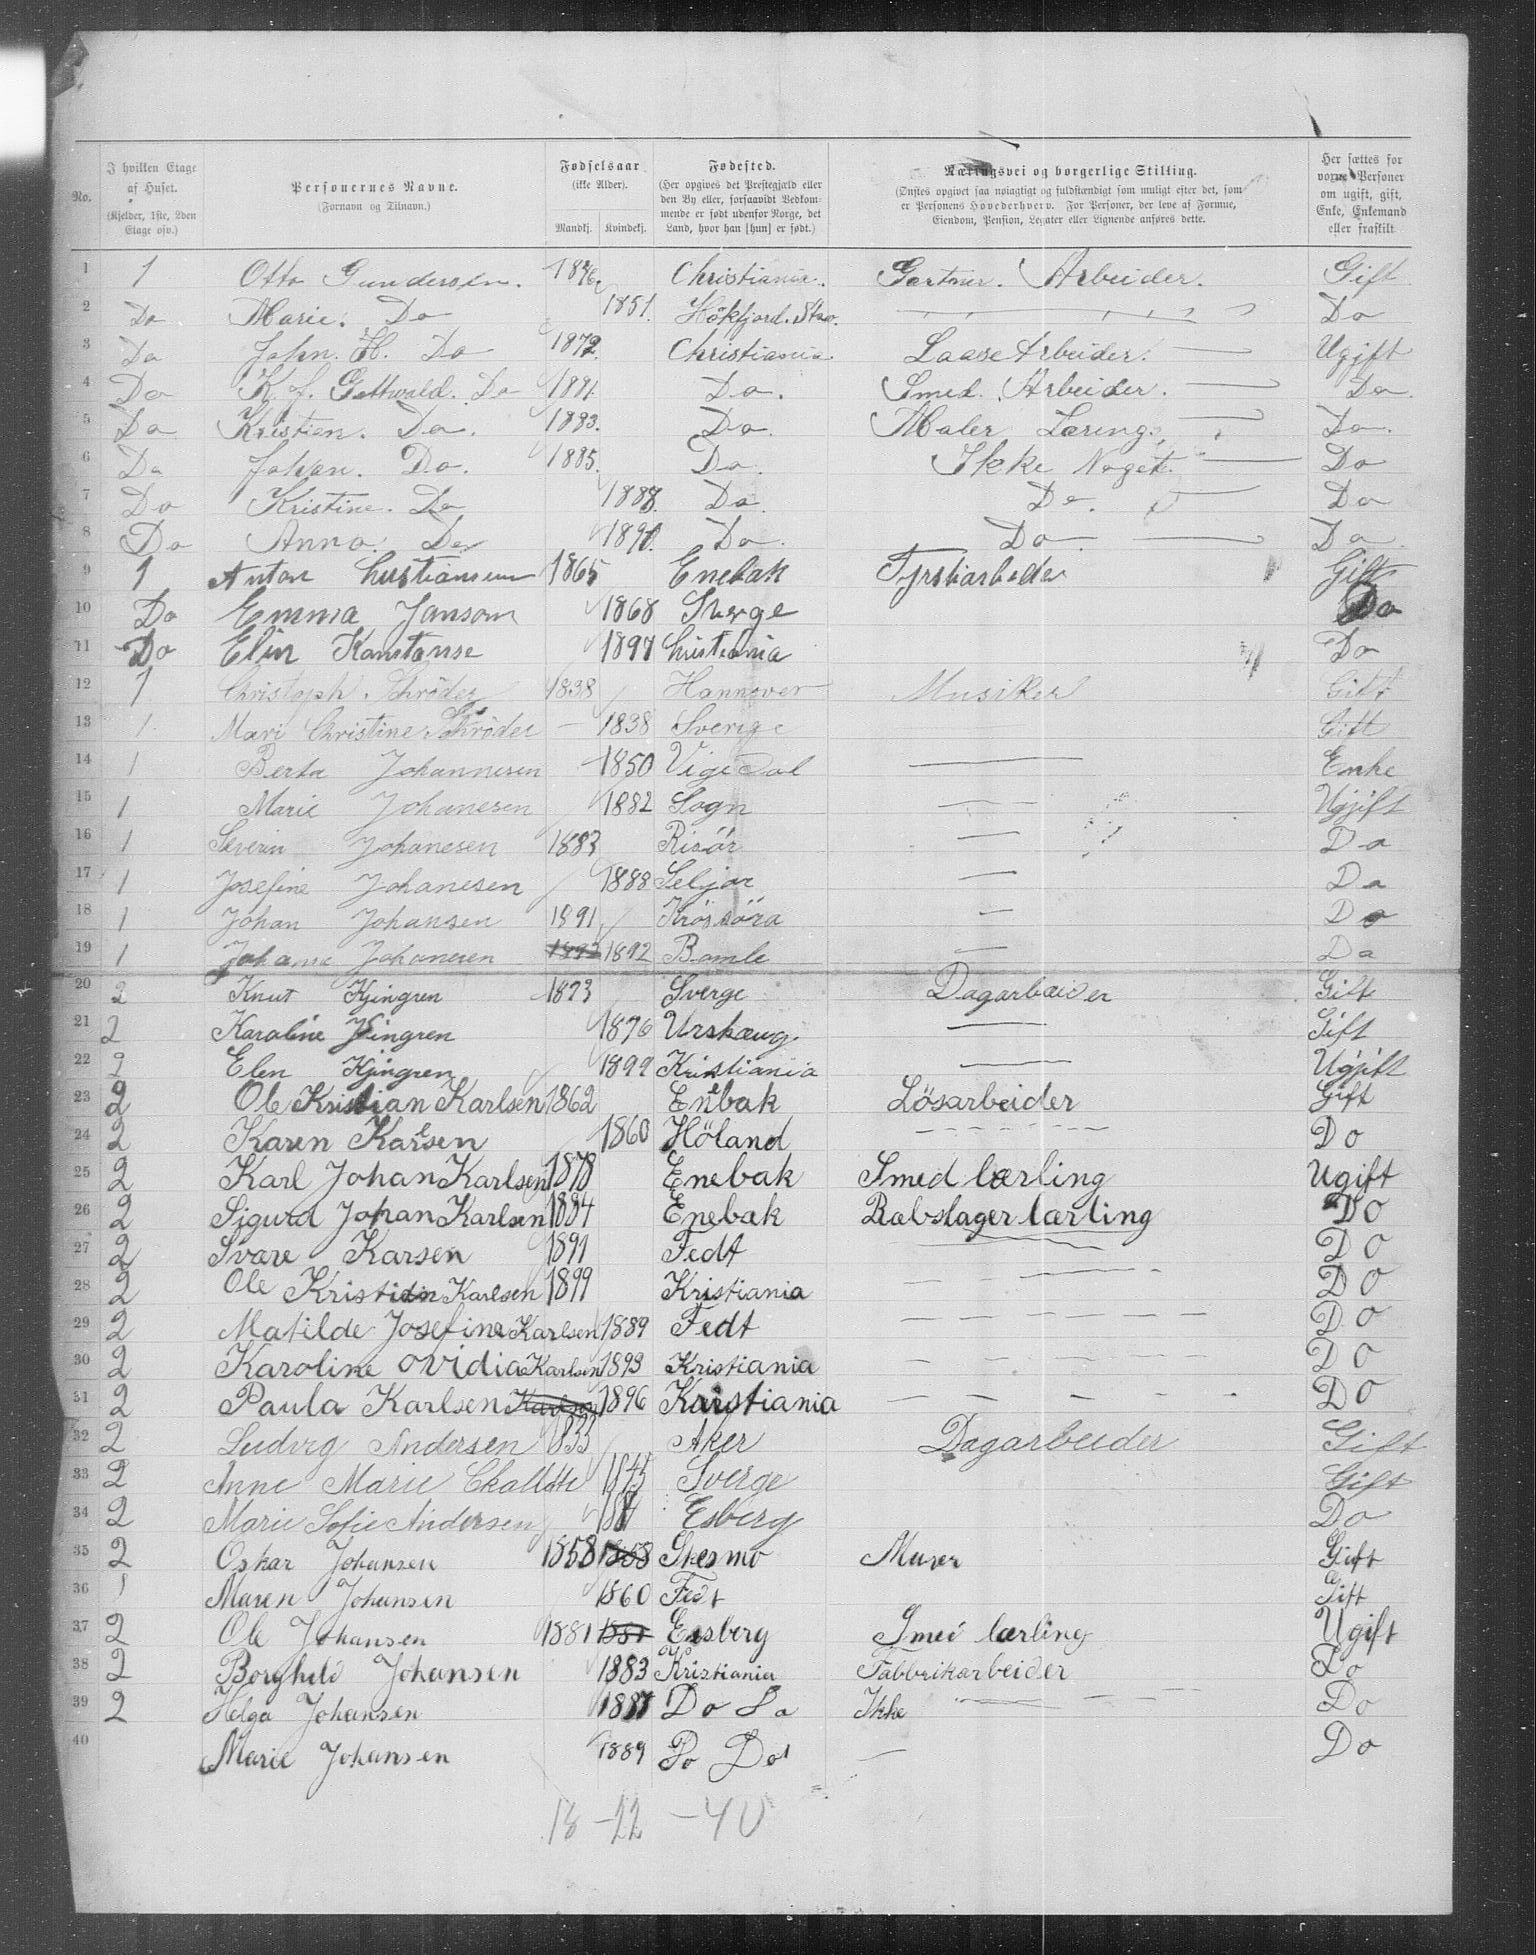 No.
I hvilken Etage af Huset. (Kjelder, 1ste, 2den Etage osv.)
Personernes Navne. (Fornavn og Tilnavn.)
Fødselsaar (ikke Alder). Mandkj. Kvindekj.
Fødested. (Her opgives det Prestegjæld eller den By eller, forsaavidt Bedkommende er født udenfor Norge, det Land, hvor han [hun] er født.)
Næringsvei og borgerlige Stilling. (Ønskes opgivet saa nøiagtigt og fuldstændigt som muligt efter det, som er Personens Hovederhverv. For Personer, der leve af Formue, Eiendom, Pension, Legater eller Lignende anføres dette.
Her sættes for voxne Personer om ugift, gift, Enke, Enkemand eller fraskilt
1 1 Otto Gundersen. Christiania. Gartner. Arbeider. Gift
2 Do Marie. Do 1851. Do
3 Do John. H. Do 1872. Christiania Laase Arbeider. Ugift
4 Do K. f. Gottwald. Do 1881. Do. Smed. Arbeider. Do.
5 Do Kristien. Do. 1883. Do Maler Læring. Do.
6 Do Johan. Do. 1885. Do. Ikke Noget. Do
7 Do Kristine. Do 1888. Do. Do. Do
8 Do Anna. Do 1891. Do. Do. Do.
9 1 Anton Christiansen 1865 Enebak Gift
10 Do Emma Janson 1868 Sverge Do
11 Do Elin Konstanse 1897 Christiania Do
12 1 Christoph. Schröder 1838 Hannover Musiker Gift
13 1 Mari Christine Schröder — 1838 Sverige Gift
14 1 Berta Johannesen 1850 Vigedal Enke
15 1 Marie Johanesen 1882 Sogn Ugift
16 1 Severin Johanesen 1883 Risör Do
17 1 Josefine Johanesen 1888 Seljor Do
18 1 Johan Johansen 1891 Do
19 1 Johanne Johanesen 1892 1892 Bamle Do
20 2 Knut Kjingren 1873 Sverge Dagarbeider Gift
21 2 Karoline Kjingren 1876 Urskaug. Gift
22 2 Elen Kjingren 1899 Kristiania Ugift
23 2 Ole Kristian Karlsen 1862 Enebak Lösarbeider Gift
24 2 Karen Karlsen 1860 Höland Do
25 2 Karl Johan Karlsen 1878 Enebak Smed lærling Ugift
26 2 Sigurd Johan Karlsen 1884 Enebak Rebslager lærling Do
27 2 Svare Karsen 1891 Fedt Do
28 2 Ole Kristian Karlsen 1899 Kristiania Do
29 2 Matilde Josefine Karlsen 1889 Fedt Do
30 2 Karoline Ovidia Karlsen 1893 Kristiania Do
31 2 Paula Karlsen Karlsen 1896 Kristiania Do
32 2 Ludvig Andersen 1833 Aker Dagarbeider Gift
33 2 Anne Marie 1845 Sverge Gift
34 2 Marie Sofie Andersen Esberg Do
35 2 Oskar Johansen 1858 1858 Skesmo Murer Gift
36 1 Maren Johansen 1860 Fedt Gift
37 2 Ole Johansen 1881 1881 Eesberg Smed lærling Ugift
38 2 Borghild Johansen 1883 Kristiania Fabbrikarbeider Do
39 2 Helga Johansen 1887 Do Do Ikke Do
40 Marie Johansen 1889 Do Do — Do
18 – 22 – 40